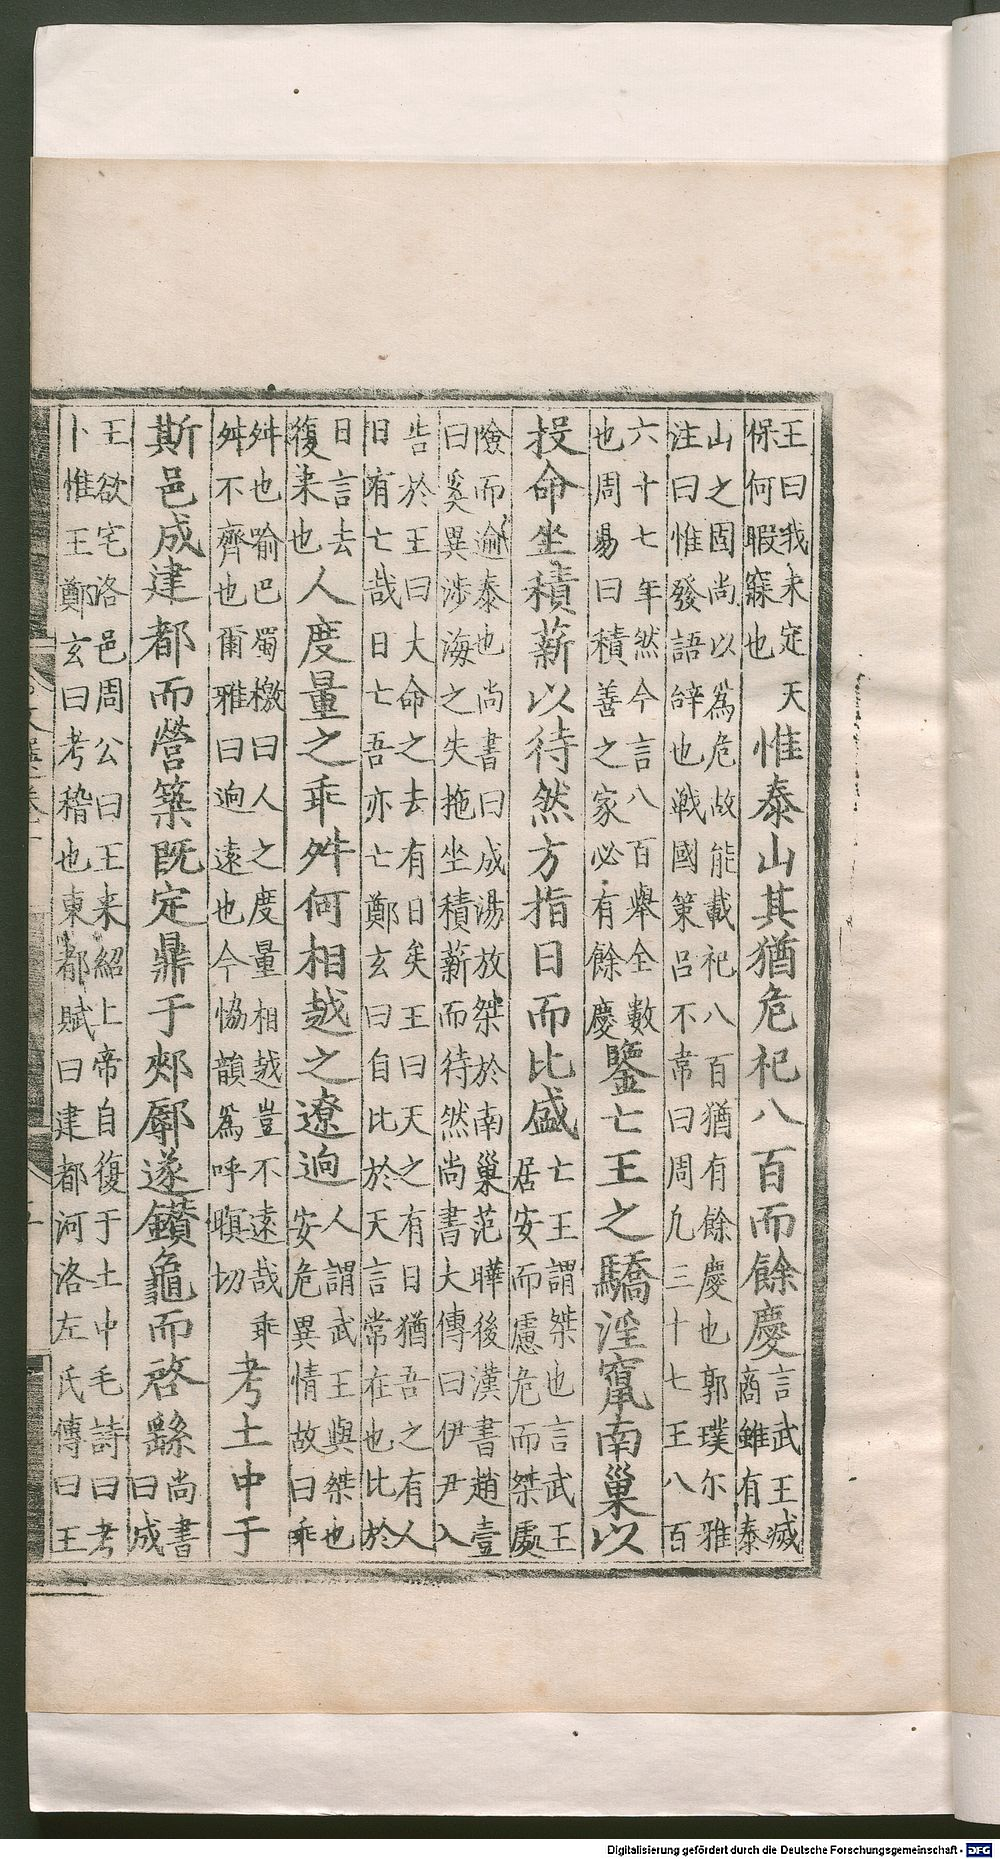 王曰我未定天
保何暇寐也
惟泰山其猶危祀八百而餘慶
言武王滅
商雖有泰
山之固尚以為危故能載祀八百猶有餘慶也郭璞尔雅
注曰惟發語辝也戰國策吕不韋曰周凢三十七王八百
六十七年然今言八百舉全數
也周易曰積善之家必有餘慶
鑒亡王之驕淫竄南巢以
投命坐積薪以待然方指日而比盛
亡王謂桀也言武王
居安而慮危而桀處
險而逾泰也尚書曰成湯放桀於南巢范曄後漢書趙壹
曰奚異涉海之失拖坐積薪而待然尚書大傳曰伊尹入
告於王曰大命之去有日矣王曰天之有日猶吾之有人
日有亡哉日亡吾亦亡鄭玄曰自比於天言常在也比於
日言去
復来也
人度量之乖舛何相越之遼逈
人謂武王與桀也
安危異情故曰乖
舛也喻巴蜀檄曰人之度量相越豈不遠哉乖
舛不齊也爾雅曰逈遠也今恊韻為呼瞑切
考土中于
斯邑成建都而營築既定鼎于郟鄏遂鑽龜而啓繇
尚書
曰成
王欲宅洛邑周公曰王来紹上帝自復于土中毛詩曰考
卜惟王鄭玄曰考稽也東都賦曰建都河洛左氏傳曰王
Digitalisierung gefördert durch die Deutsche Forschungsgemeinschaft - DFG